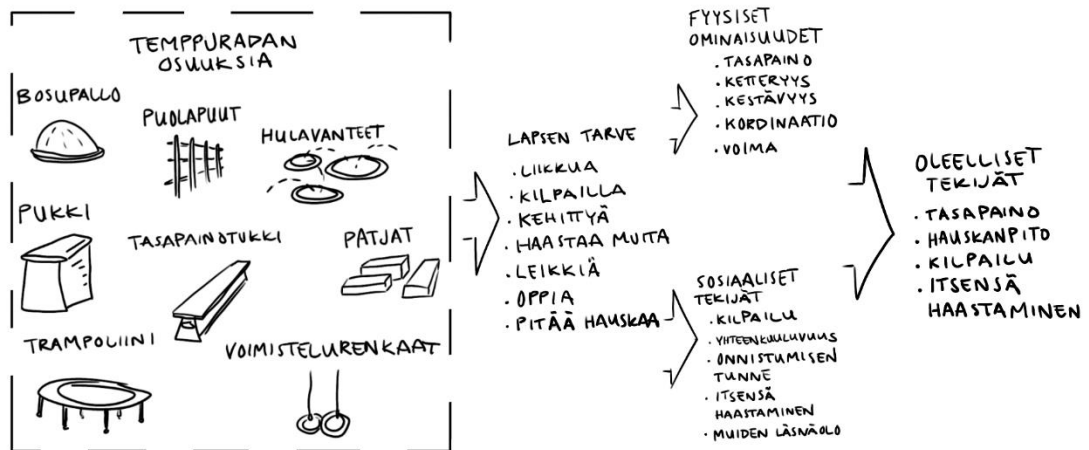 TEMPPURADAN
OSUUKSIA
BOSUPALLO
PUOLAPUUT
HULAVANTEET
PUKKI
TASAPAINOTUKKI
PATJAT
TRAMPOLIINI
VOIMISTELURENKAAT
LAPSEN TARVE
• LIIKKUA
• KILPAILLA
• KEHITTYÄ
• HAASTAA MUITA
• LEIKKIÄ
• OPPIA
• PITÄÄ HAUSKAA
FYYSISET
OMINAISUUDET
• TASAPAINO
• KETTERYYS
• KESTÄVYYS
• KORDINAATIO
• VOIMA
SOSIAALISET
TEKIJÄT
• KILPAILU
• YHTEENKUULUVUUS
• ONNISTUMISEN
TUNNE
• ITSENSÄ
HAASTAMINEN
• MUIDEN LÄSNÄOLO
OLEELLISET
TEKIJÄT
• TASAPAINO
• HAUSKANPITO
• KILPAILU
• ITSENSÄ
HAASTAMINEN